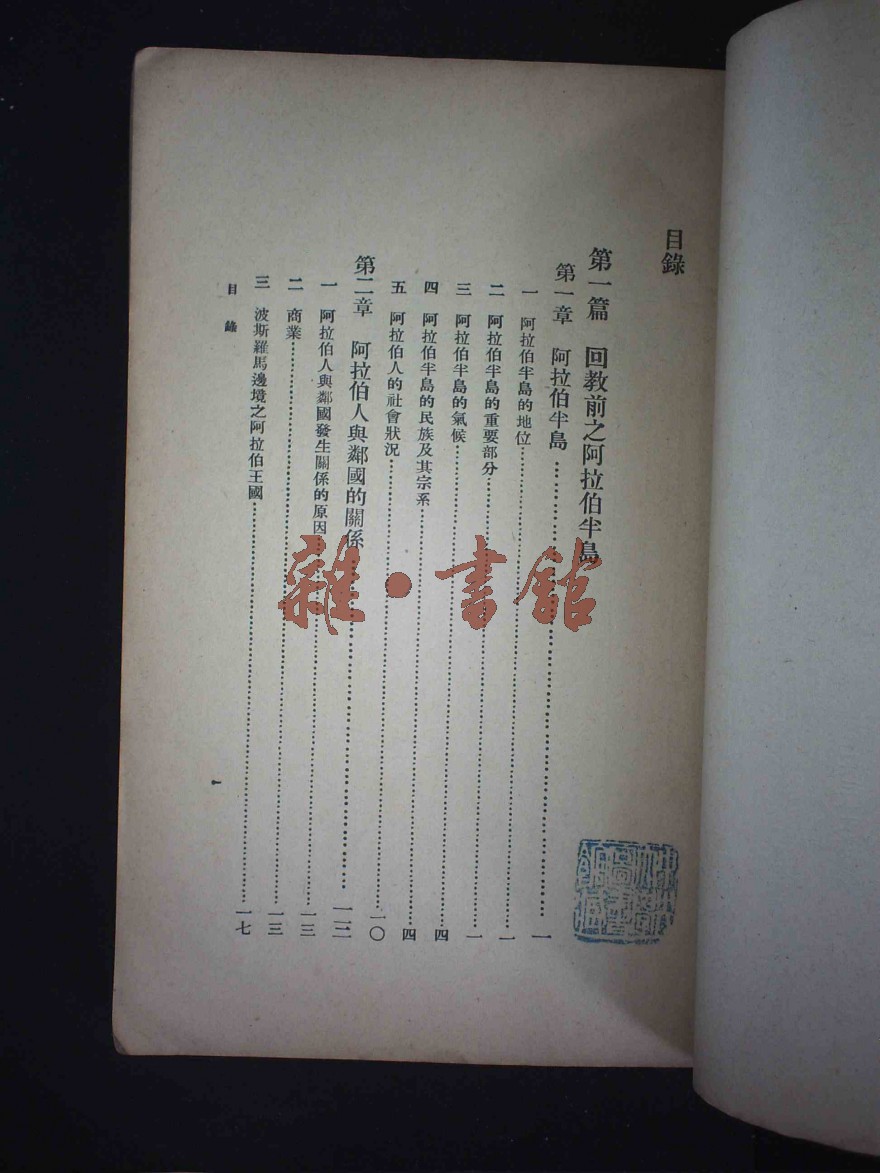 目錄
第一篇 回教前之阿拉伯半島
第一章 阿拉伯半島……一
一 阿拉伯半島的地位……一
二 阿拉伯半島的重要部分……一
三 阿拉伯半島的氣候……四
四 阿拉伯半島的民族及其宗系……四
五 阿拉伯人的社會狀況……一〇
第二章 阿拉伯人與鄰國的關係……一三
一 阿拉伯人與鄰國發生關係的原因……一三
二 商業……一三
三 波斯羅馬邊境之阿拉伯王國……一七
目錄
一
雜·書館